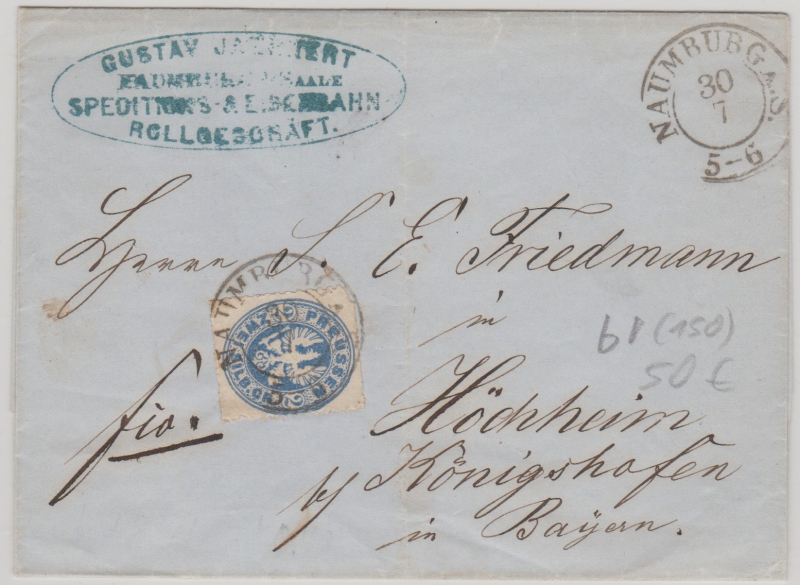 GUSTAV
NAUMBURG A/SAALE
SPEDITIONS- & EISENBAHN
ROLLGESCHÄFT.
NAUMBURG A.S.
30
7
5-6
Herrn S. E. Friedmann
in
b1 (150)
50 €
NAUMBURG
PREUSSEN
ZWEI
fro.
Höchheim
b/ Königshofen
in Bayern.